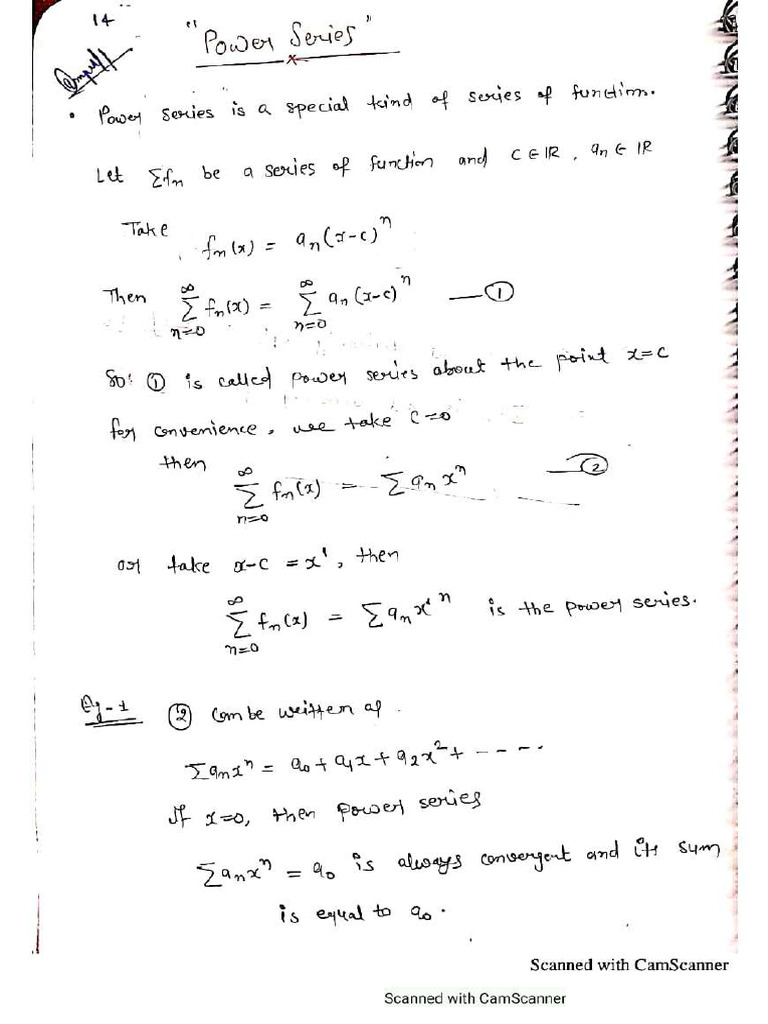 14
"Power Series"
• Power series is a special kind of series of function.
Let Σfn be a series of function and C ∈ IR, an ∈ IR
Take
fn(x) = an(x-c)^n
Then ∞Σn=0 fn(x) = ∞Σn=0 an(x-c)^n — ①
So: ① is called power series about the point x=c
for convenience, we take c=0
then
∞Σn=0 fn(x) = Σ an x^n — ②
or take x-c = x', then
∞Σn=0 fn(x) = Σ an x'^n is the power series.
Eg-1 ② can be written as.
Σ an x^n = a0 + a1x + a2x^2 + - - - -.
If x=0, then power series
Σ an x^n = a0 is always convergent and its sum
is equal to a0.
Scanned with CamScanner
Scanned with CamScanner